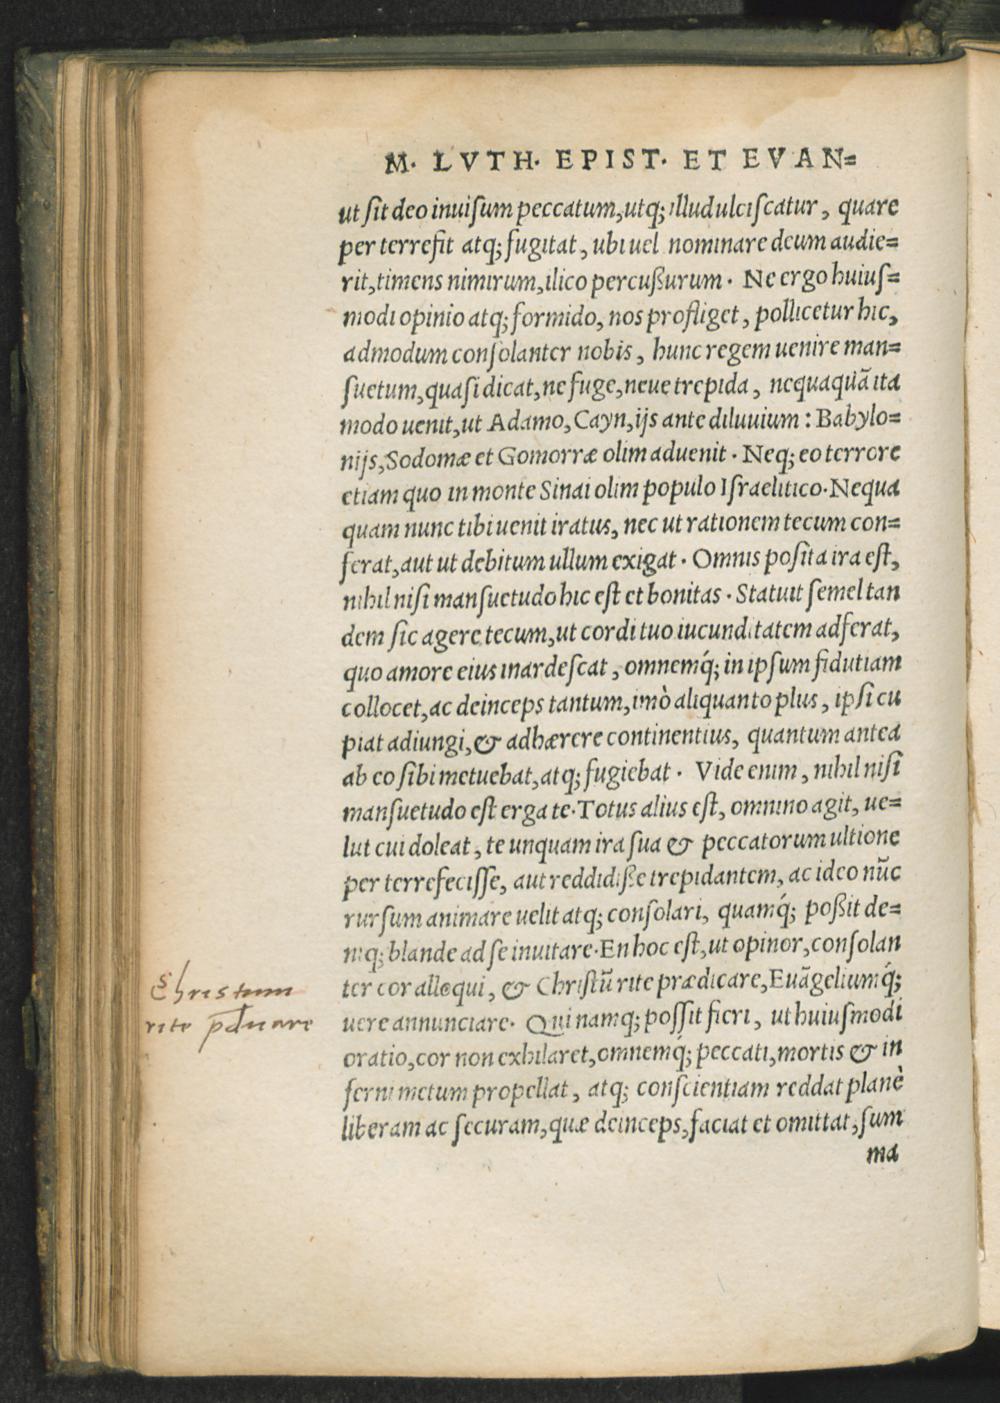 M. LVTH. EPIST. ET EVAN=
ut sit deo inuisum peccatum, utq; illud ulciscatur, quare
perterrefit atq; fugitat, ubi uel nominare deum audie=
rit, timens nimirum, ilico percußurum. Ne ergo huius=
modi opinio atq; formido, nos profliget, pollicetur hic,
admodum consolanter nobis, hunc regem uenire man=
suetum, quasi dicat, ne fuge, neue trepida, nequaquā ita
modo uenit, ut Adamo, Cayn, ijs ante diluuium: Babylo=
nijs, Sodomæ et Gomorræ olim aduenit. Neq; eo terrore
etiam quo in monte Sinai olim populo Israelitico. Nequa
quam nunc tibi uenit iratus, nec ut rationem tecum con=
ferat, aut ut debitum ullum exigat. Omnis posita ira est,
nihil nisi mansuetudo hic est et bonitas. Statuit semel tan
dem sic agere tecum, ut cordi tuo iucunditatem adferat,
quo amore eius inardescat, omnemq́; in ipsum fidutiam
collocet, ac deinceps tantum, imò aliquanto plus, ipsi cu
piat adiungi, & adhærere continentius, quantum antea
ab eo sibi metuebat, atq; fugiebat. Vide enim, nihil nisi
mansuetudo est erga te. Totus alius est, omnino agit, ue=
lut cui doleat, te unquam ira sua & peccatorum ultione
perterrefecisse, aut reddidiße trepidantem, ac ideo nūc
rursum animare uelit atq; consolari, quamq́; poßit de=
niq; blande ad se inuitare. En hoc est, ut opinor, consolan
ter cor alloqui, & Christū rite prædicare, Euāgeliumq́;
uere annunciare. Qui namq; possit fieri, ut huiusmodi
oratio, cor non exhilaret, omnemq́; peccati, mortis & in
ferni metum propellat, atq; conscientiam reddat planè
liberam ac securam, quæ deinceps, faciat et omittat, sum
ma
Christum
rite